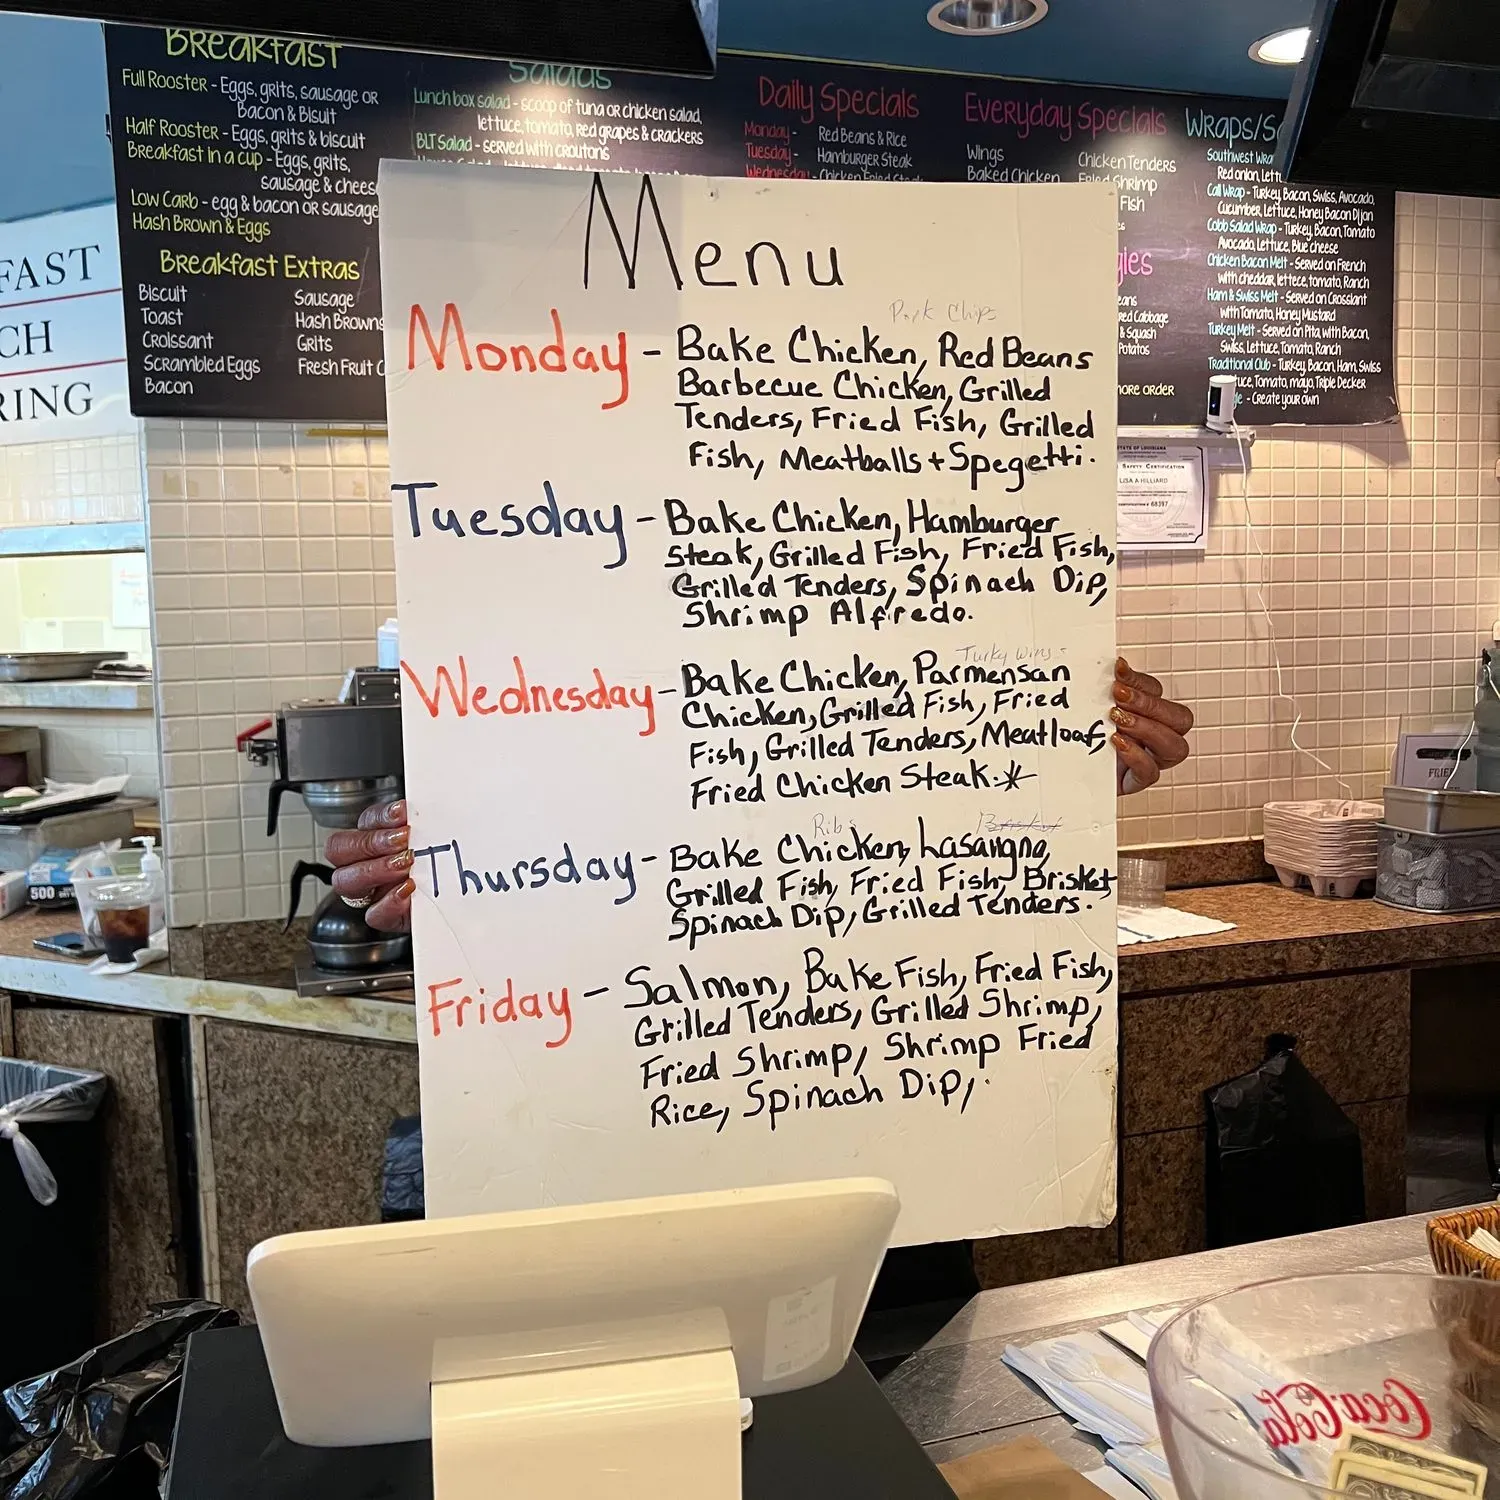 BREAKFAST
Full Rooster - Eggs, grits, sausage OR
Bacon & BIsuit
Half Rooster - Eggs, grits & biscuit
Breakfast in a cup - Eggs, grits,
sausage & chees
Low Carb - egg & bacon OR sausage
Hash Brown & Eggs
Breakfast Extras
Biscuit
Toast
Croissant
Scrambled Eggs
Bacon
Sausage
Hash Browns
Grits
Fresh Fruit C
Salads
Lunch box salad - scoop of tuna or chicken salad,
lettuce, tomato, red grapes & crackers
BLT Salad - served with croutons
Daily Specials
Monday - Red Beans & Rice
Tuesday - Hamburger Steak
Wednesday - Chicken Fried Steak
Everyday Specials
Wings
Baked Chicken
Chicken Tenders
Fried Shrimp
Fish
gies
eans
red Cabbage
& Squash
Potatos
more order
Wraps/S
Southwest Wra
Red onion, Lett
Call Wrap - Turkey, Bacon, Swiss, Avocado,
Cucumber, Lettuce, Honey Bacon Dijon
Cobb Salad Wrap - Turkey, Bacon, Tomato
Avocado, Lettuce, Blue cheese
Chicken Bacon Melt - Served on French
with cheddar, lettece, tomato, Ranch
Ham & Swiss Melt - Served on Crossiant
with Tomato, Honey Mustard
Turkey Melt - Served on Pita with Bacon,
Swiss, Lettuce, Tomato, Ranch
Traditional Club - Turkey, Bacon, Ham, Swiss
uce, Tomato, mayo, Triple Decker
- Create your own
FAST
CH
RING
Menu
Pork Chips
Monday - Bake Chicken, Red Beans
Barbecue Chicken, Grilled
Tenders, Fried Fish, Grilled
Fish, Meatballs + Spegetti.
Tuesday - Bake Chicken, Hamburger
Steak, Grilled Fish, Fried Fish,
Grilled Tenders, Spinach Dip,
Shrimp Alfredo.
Turky wings
Wednesday - Bake Chicken, Parmensan
Chicken, Grilled Fish, Fried
Fish, Grilled Tenders, Meatloaf,
Fried Chicken Steak.*
Ribs Brisket
Thursday - Bake Chicken, Lasangna,
Grilled Fish, Fried Fish, Brisket
Spinach Dip, Grilled Tenders.
Friday - Salmon, Bake Fish, Fried Fish,
Grilled Tenders, Grilled Shrimp,
Fried Shrimp, Shrimp Fried
Rice, Spinach Dip,.
STATE OF LOUISIANA
Safety Certification
LISA A HILLIARD
CERTIFICATION # 68397
500
FRIED
Coca-Cola